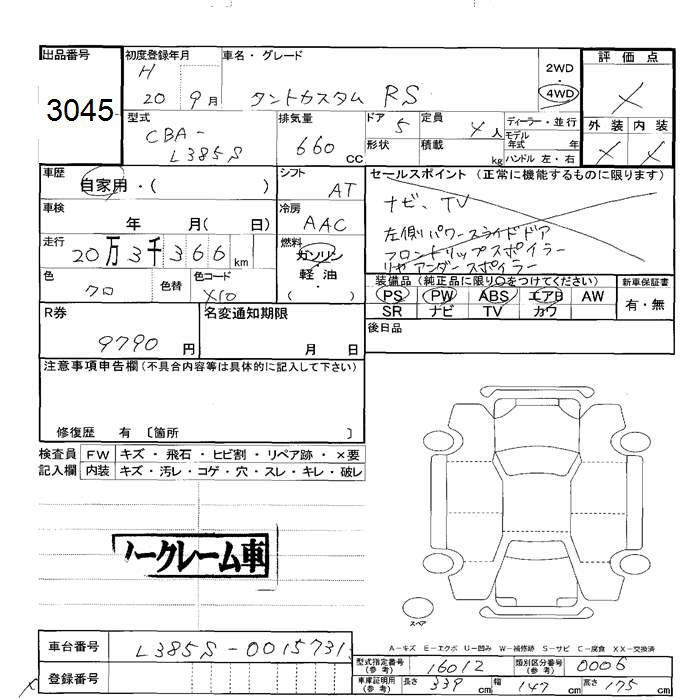 出品番号
3045
初度登録年月
H
20 9月
車名・グレード
タントカスタム RS
2WD
4WD
評価点
×
外装 内装
× ×
型式
CBA-
L385S
排気量
660 cc
ドア 5
形状
定員 4人
積載 kg
ディーラー・並行
モデル
年式 年
ハンドル 左・右
車歴
自家用・( )
シフト
AT
セールスポイント(正常に機能するものに限ります)
ナビ、TV
左側パワースライドドア
フロントリップスポイラー
リヤアンダースポイラー
車検
年 月( 日)
冷房
AAC
走行
20万3千366km
燃料
ガソリン
軽油
( )
色
クロ
色替
色コード
X10
装備品(純正品に限り○をつけてください)
PS PW ABS エアB AW
SR ナビ TV カワ
新車保証書
有・無
後日品
R券
9790 円
名変通知期限
月 日
注意事項申告欄(不具合内容等は具体的に記入して下さい)
修復歴 有 〔箇所 〕
検査員 FW キズ・飛石・ヒビ割・リペア跡・×要
記入欄 内装 キズ・汚レ・コゲ・穴・スレ・キレ・破レ
ノークレーム車
スペア
A-キズ E-エクボ U-凹み W-補修跡 S-サビ C-腐食 XX-交換済
車台番号 L385S-0015731
登録番号
型式指定番号
(参考)
16012
類別区分番号
(参考)
0006
車庫証明用
(参考)
長さ 339cm 幅 147cm 高さ 175cm